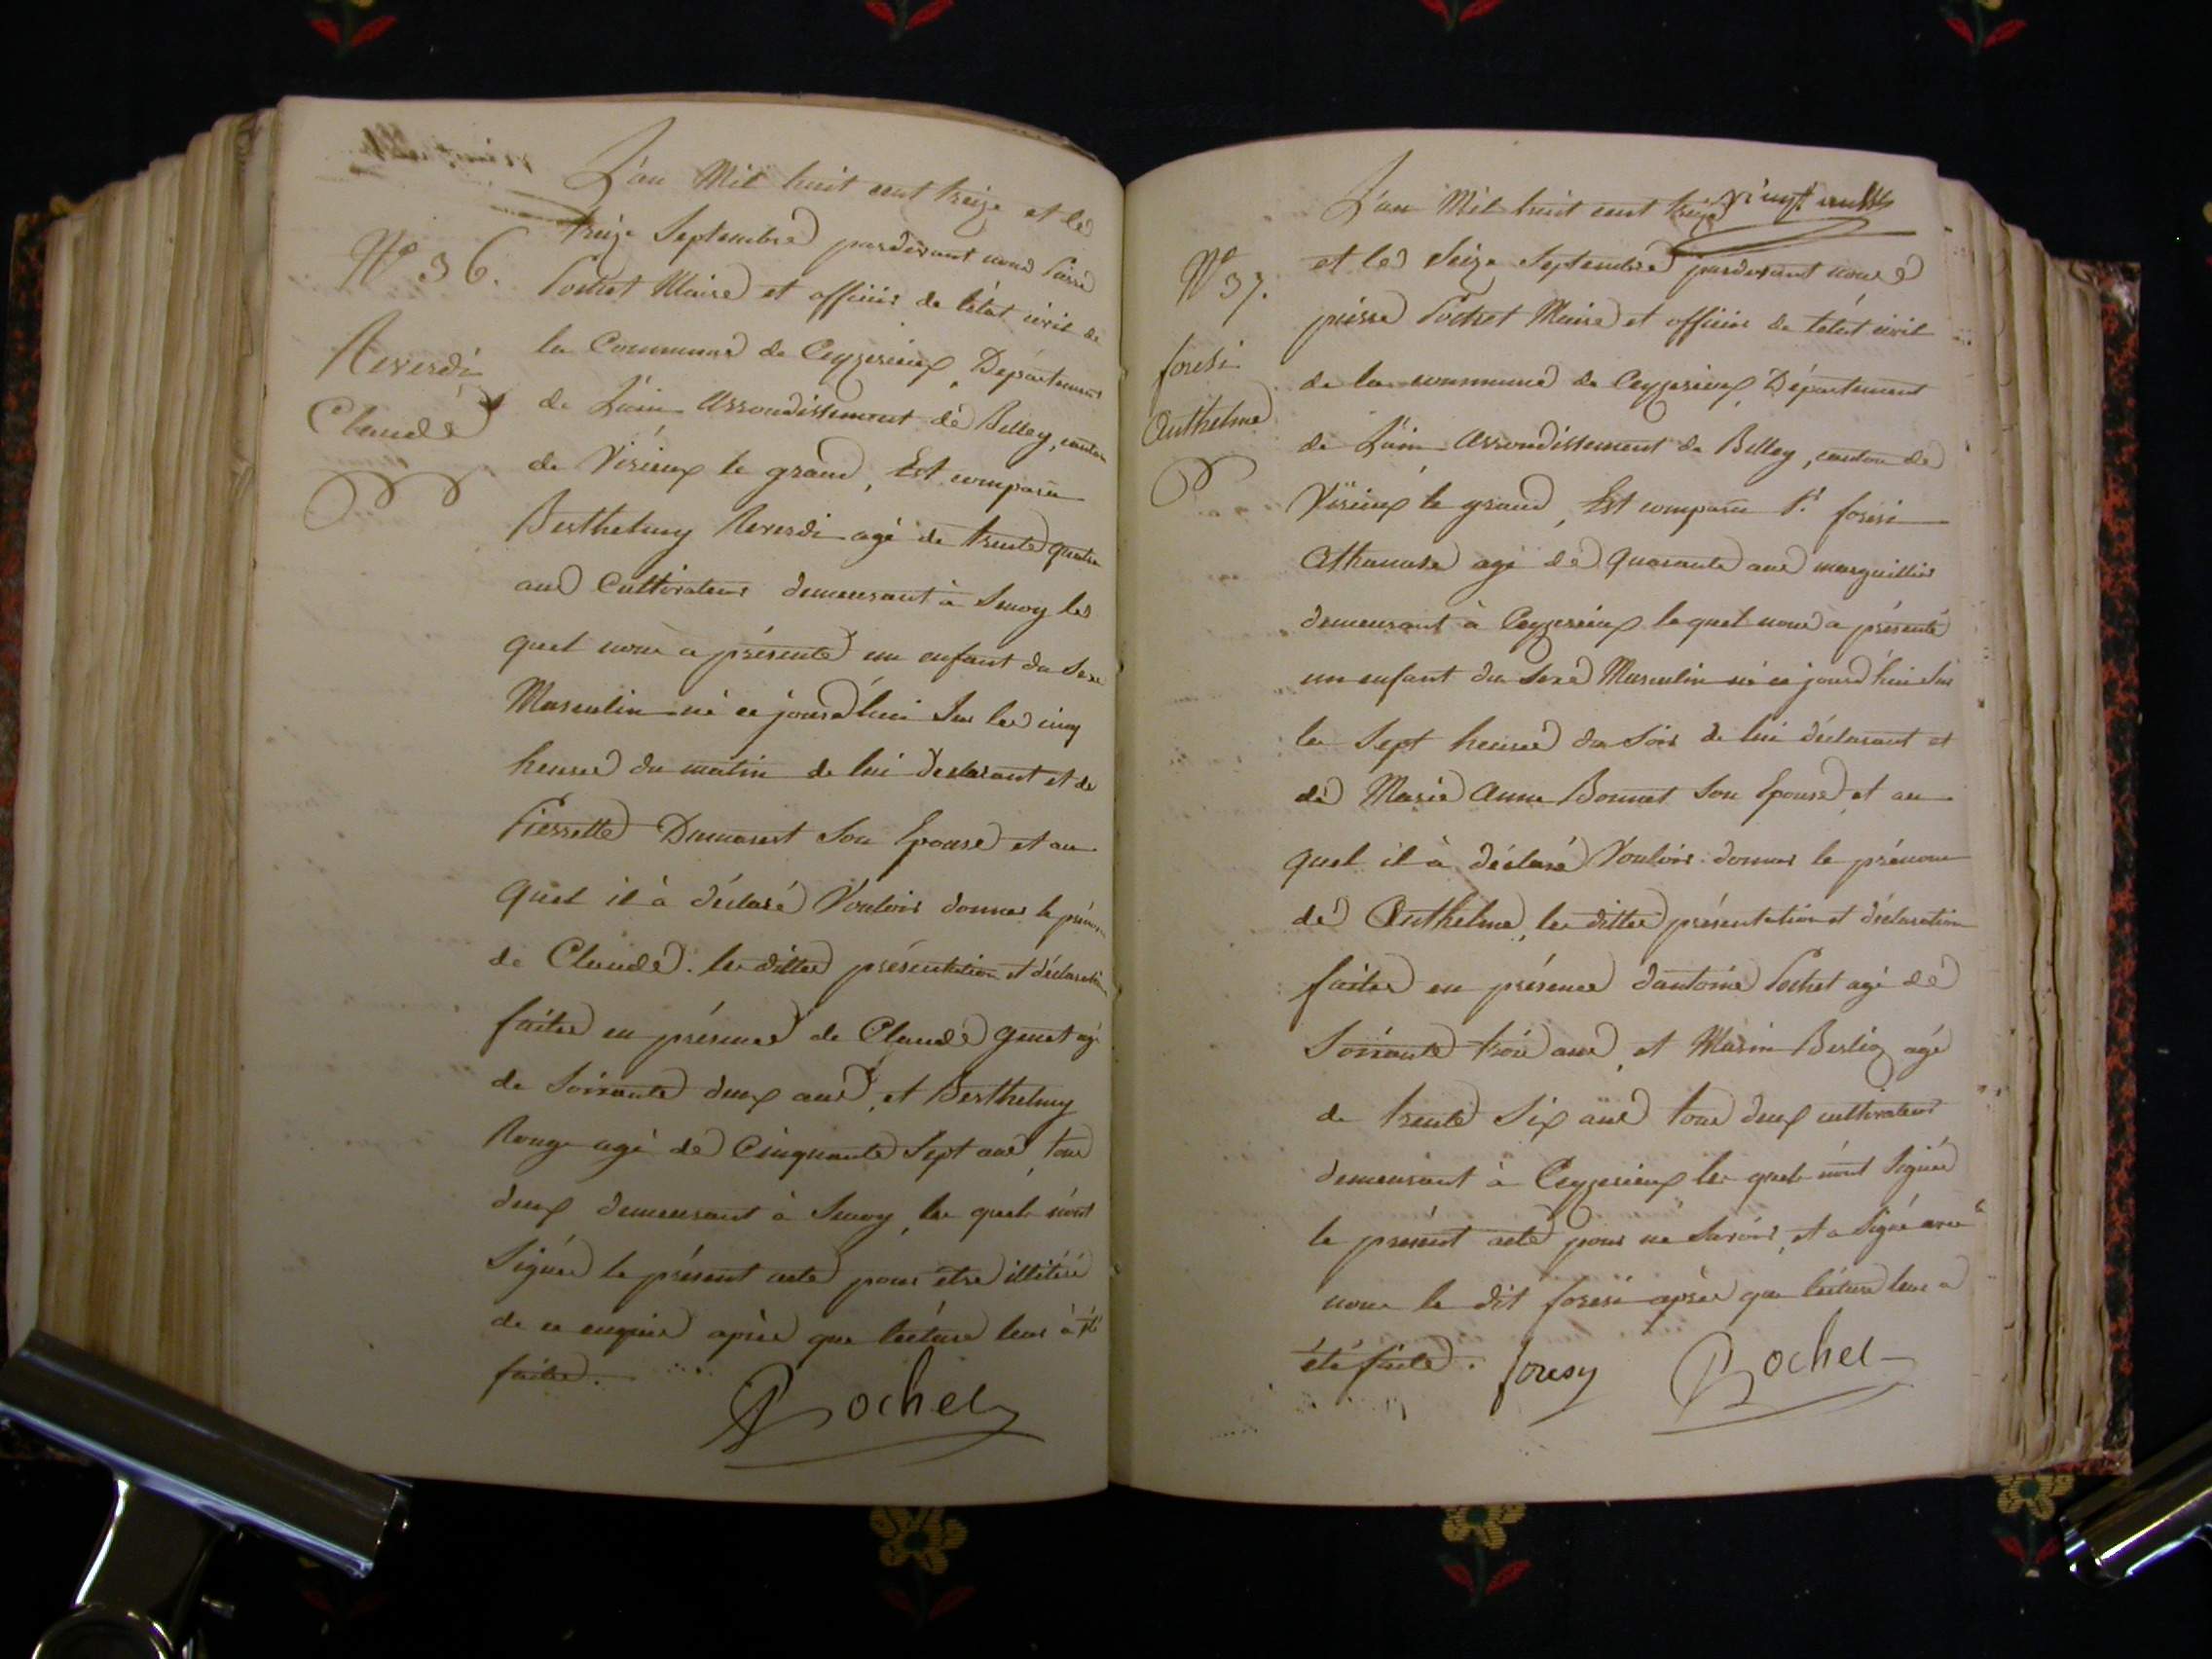 L'an Mil huit cent treize et le
treize Septembre pardevant nous Pierre
Pochet Maire et officier de l'état civil de
la Commune de Ceyzerieux, Département
de L'ain arrondissement de Belley, canton
de Virieux le grand, Est comparu
Berthelmy Reverdi agé de trente quatre
ans Cultivateur demeurant à Senoy le
quel nous a présenté un enfant du Sexe
Masculin né ce jourd'hui Sur les cinq
heures du matin de lui declarant et de
Pierrette Dumarest Son Epouse et au
quel il à déclaré Vouloir donner le prénom
de Claude. les dittes présentation et déclaration
faites en présence de Claude genet agé
de Soixante deux ans, et Berthelmy
Rouge agé de Cinquante Sept ans, tous
deux demeurant à Senoy, les quels n'ont
Signés le présent acte pour être illitéré
de ce enquis après que lécture leur à été
faite.
Pochet
N.o 36.
Reverdi
Claude
vingt
L'an Mil huit cent treize
et le Seize Septembre pardevant nous
pierre Pochet Maire et officier de l'état civil
de la commune de Ceyzerieux, Département
de L'ain arrondissement de Belley, canton de
Virieux le grand, Est comparu Sr. foresi
Athanase agé de quarante ans marguillier
demeurant à Ceyzerieux le quel nous a présenté
un enfant du Sexe Masculin né ce jourd'hui Sur
les Sept heures du Soir de lui déclarant et
de Marie Anne Bonnet Son Epouse, et au
quel il à déclaré Vouloir donner le prénom
de Anthelme, les dittes présentation et déclaration
faites en présence d'antoine Pochet agé de
Soixante trois ans, et Marin Berlioz agé
de trente Six ans tous deux cultivateurs
demeurant à Ceyzerieux les quels n'ont Signés
le présent acte pour ne Savoir, et a Signé avec
nous le dit foresi après que lécture leur a
été faite.
foresy
Pochet
N.o 37.
foresi
Anthelme